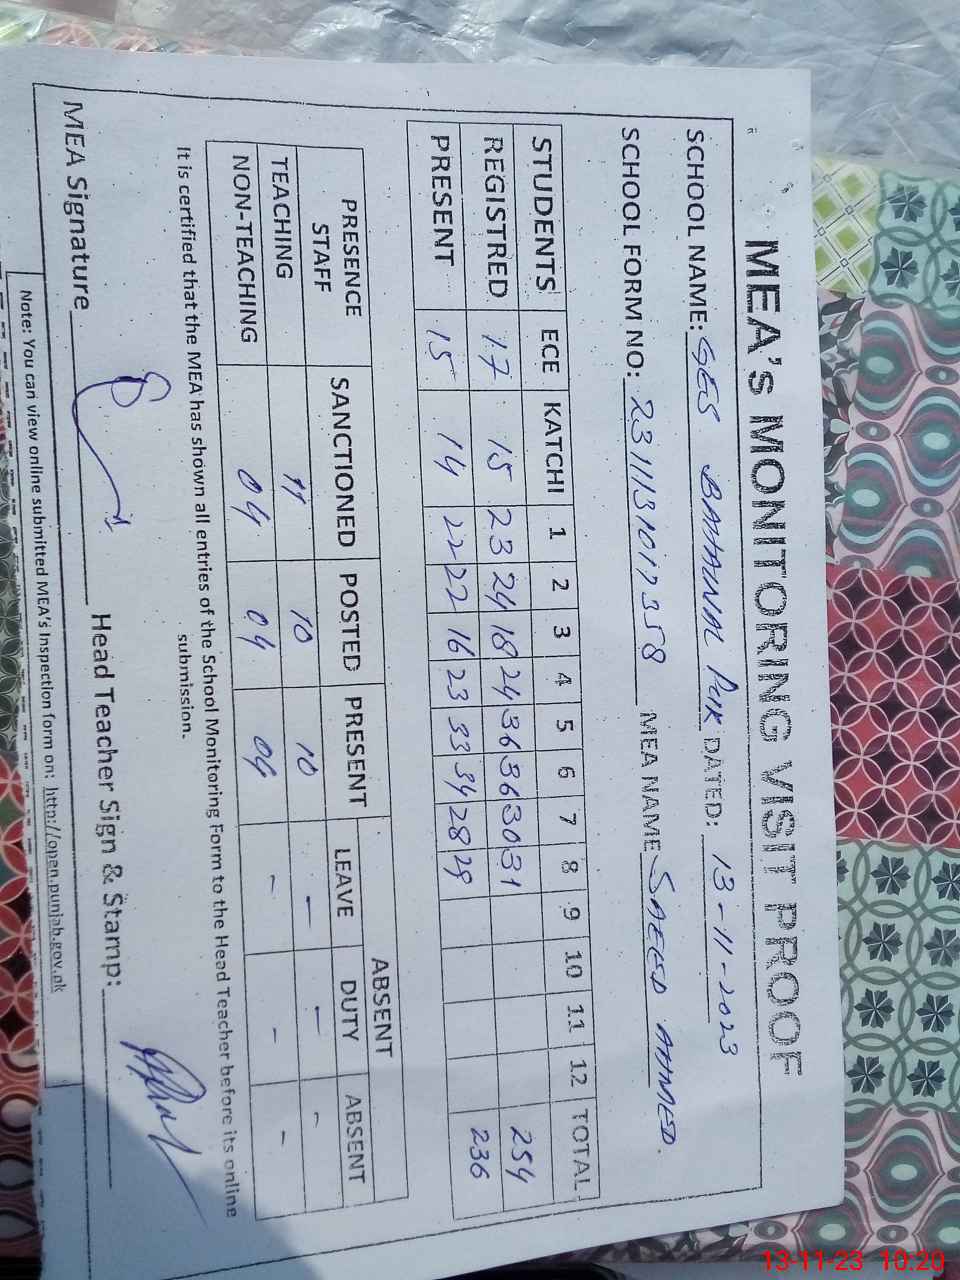 MEA's MONITORING VISIT PROOF
SCHOOL NAME: GES BAHAWAL PUR DATED: 13-11-2023
SCHOOL FORM NO: 2311131017358 MEA NAME SAEED AHMED.
STUDENTS ECE KATCHI 1 2 3 4 5 6 7 8 9 10 11 12 TOTAL
REGISTRED 17 15 23 24 18 24 36 36 30 31 254
PRESENT 15 14 22 22 16 23 33 34 28 29 236
PRESENCE STAFF SANCTIONED POSTED PRESENT ABSENT
LEAVE DUTY ABSENT
TEACHING 11 10 10 - - -
NON-TEACHING 04 04 04 - - -
It is certified that the MEA has shown all entries of the School Monitoring Form to the Head Teacher before its online
submission.
MEA Signature Head Teacher Sign & Stamp:
Note: You can view online submitted MEA's Inspection form on: http://open.punjab.gov.pk
13-11-23 10:20